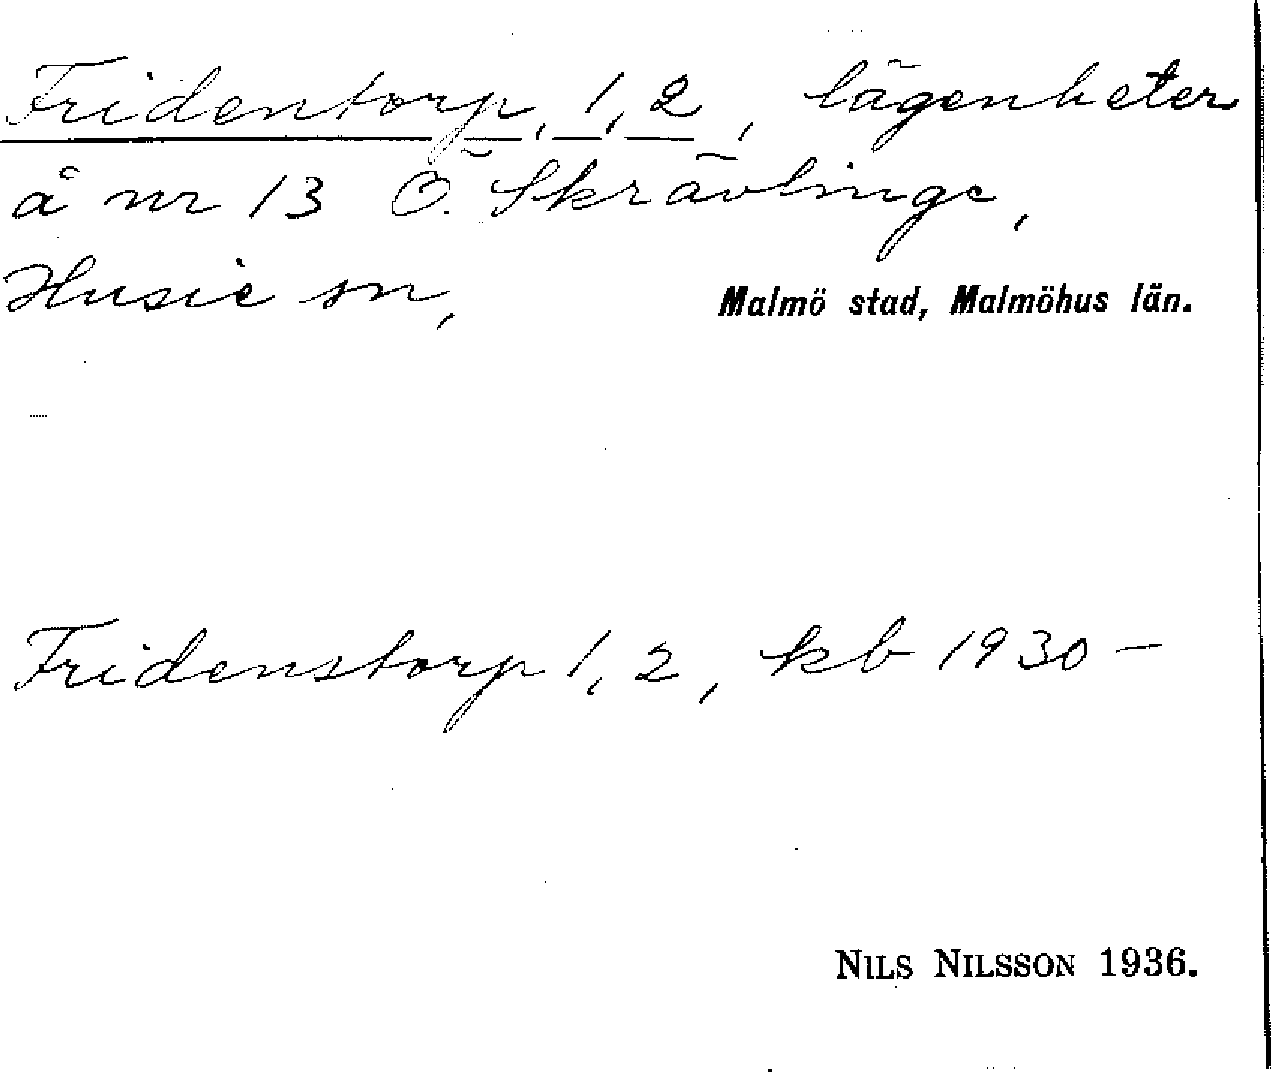 Fridentorp, 1, 2, lägenheter
å nr 13 Ö. Skrävlinge,
Husie sn, Malmö stad, Malmöhus län.
Fridenstorp 1, 2, kb 1930–
NILS NILSSON 1936.